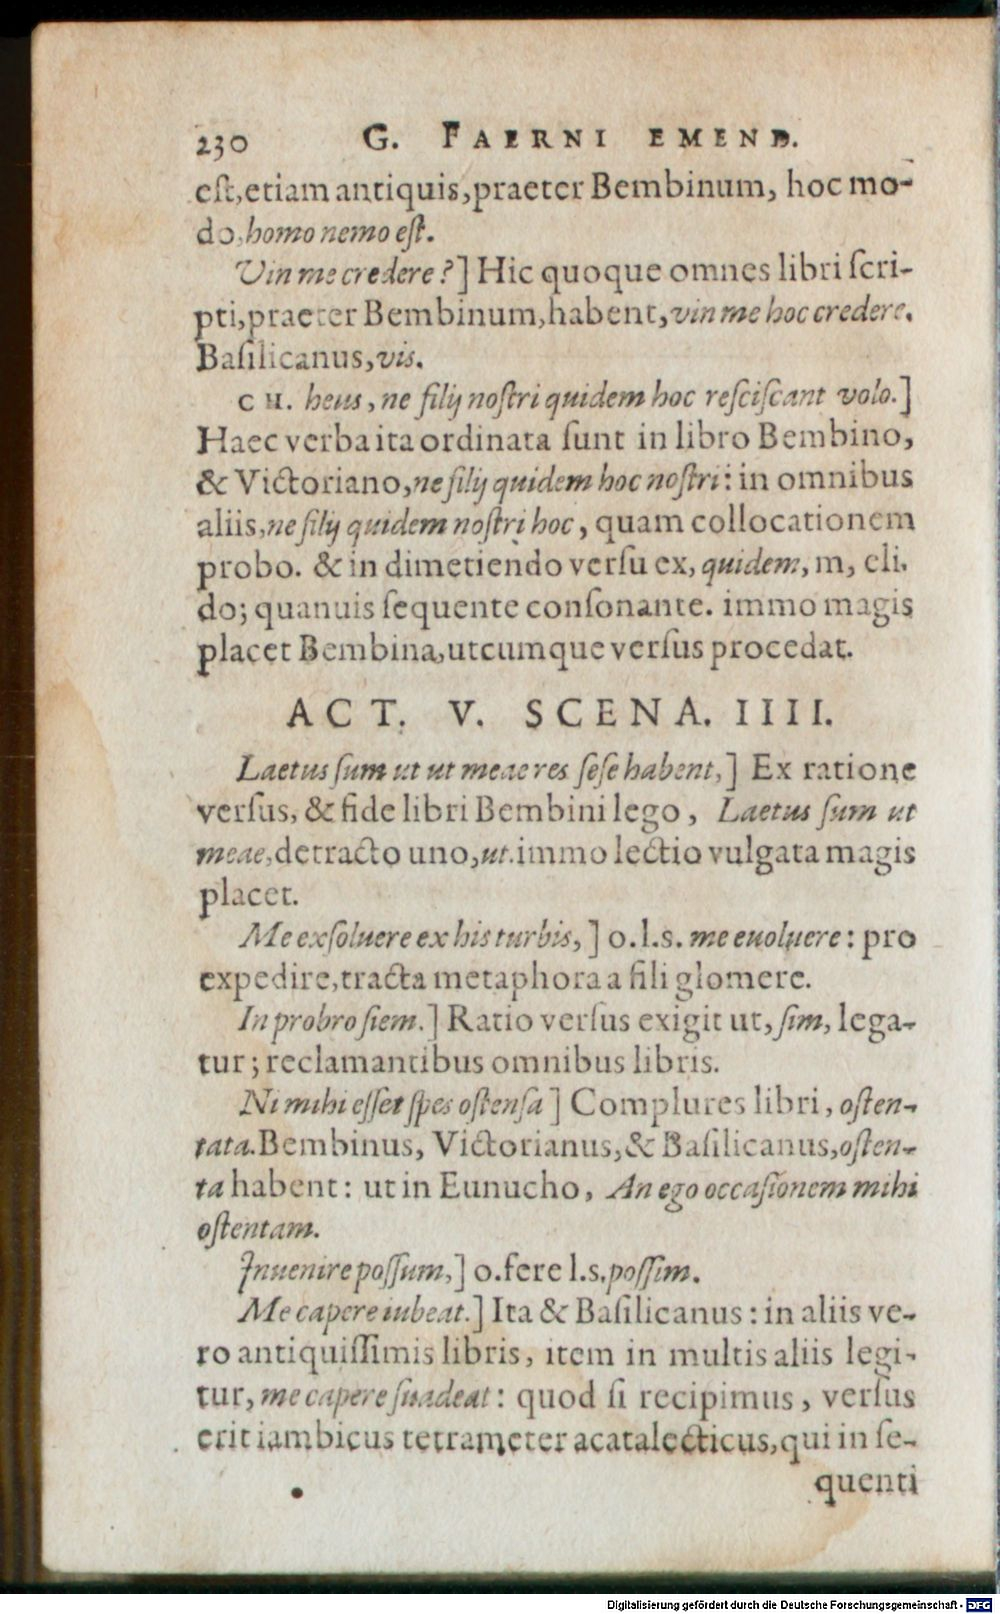 230 G. FAERNI EMEND.
est, etiam antiquis, praeter Bembinum, hoc mo-
do, homo nemo est.
Vin me credere?] Hic quoque omnes libri scri-
pti, praeter Bembinum, habent, vin me hoc credere.
Basilicanus, vis.
CH. heus, ne filij nostri quidem hoc resciscant volo.]
Haec verba ita ordinata sunt in libro Bembino,
& Victoriano, ne filij quidem hoc nostri: in omnibus
aliis, ne filij quidem nostri hoc, quam collocationem
probo. & in dimetiendo versu ex, quidem, m, eli.
do; quanuis sequente consonante. immo magis
placet Bembina, utcumque versus procedat.
ACT. V. SCENA. IIII.
Laetus sum ut ut meae res sese habent,] Ex ratione
versus, & fide libri Bembini lego, Laetus sum ut
meae, detracto uno, ut. immo lectio vulgata magis
placet.
Me exsoluere ex his turbis,] o.l.s. me euoluere: pro
expedire, tracta metaphora a fili glomere.
In probro siem.] Ratio versus exigit ut, sim, lega-
tur; reclamantibus omnibus libris.
Ni mihi esset spes ostensa] Complures libri, osten-
tata. Bembinus, Victorianus, & Basilicanus, osten-
ta habent: ut in Eunucho, An ego occasionem mihi
ostentam.
Inuenire possum,] o.fere l.s. possim.
Me capere iubeat.] Ita & Basilicanus: in aliis ve-
ro antiquissimis libris, item in multis aliis legi-
tur, me capere suadeat: quod si recipimus, versus
erit iambicus tetrameter acatalecticus, qui in se-
quenti
Digitalisierung gefördert durch die Deutsche Forschungsgemeinschaft - DFG